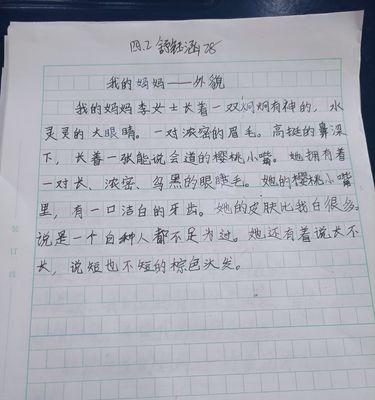 四.2 舒钰涵 28
我的妈妈——外貌
我的妈妈李女士长着一双炯炯有神的，水
灵灵的大眼睛。一对浓密的眉毛。高挺的鼻梁
下，长着一张能说会道的樱桃小嘴。她拥有着
一对长、浓密、乌黑的眼睫毛。她的樱桃小嘴
里，有一口洁白的牙齿。她的皮肤比我白很多。
说是一个白种人都不足为过。她还有着说长不
长，说短也不短的棕色头发。